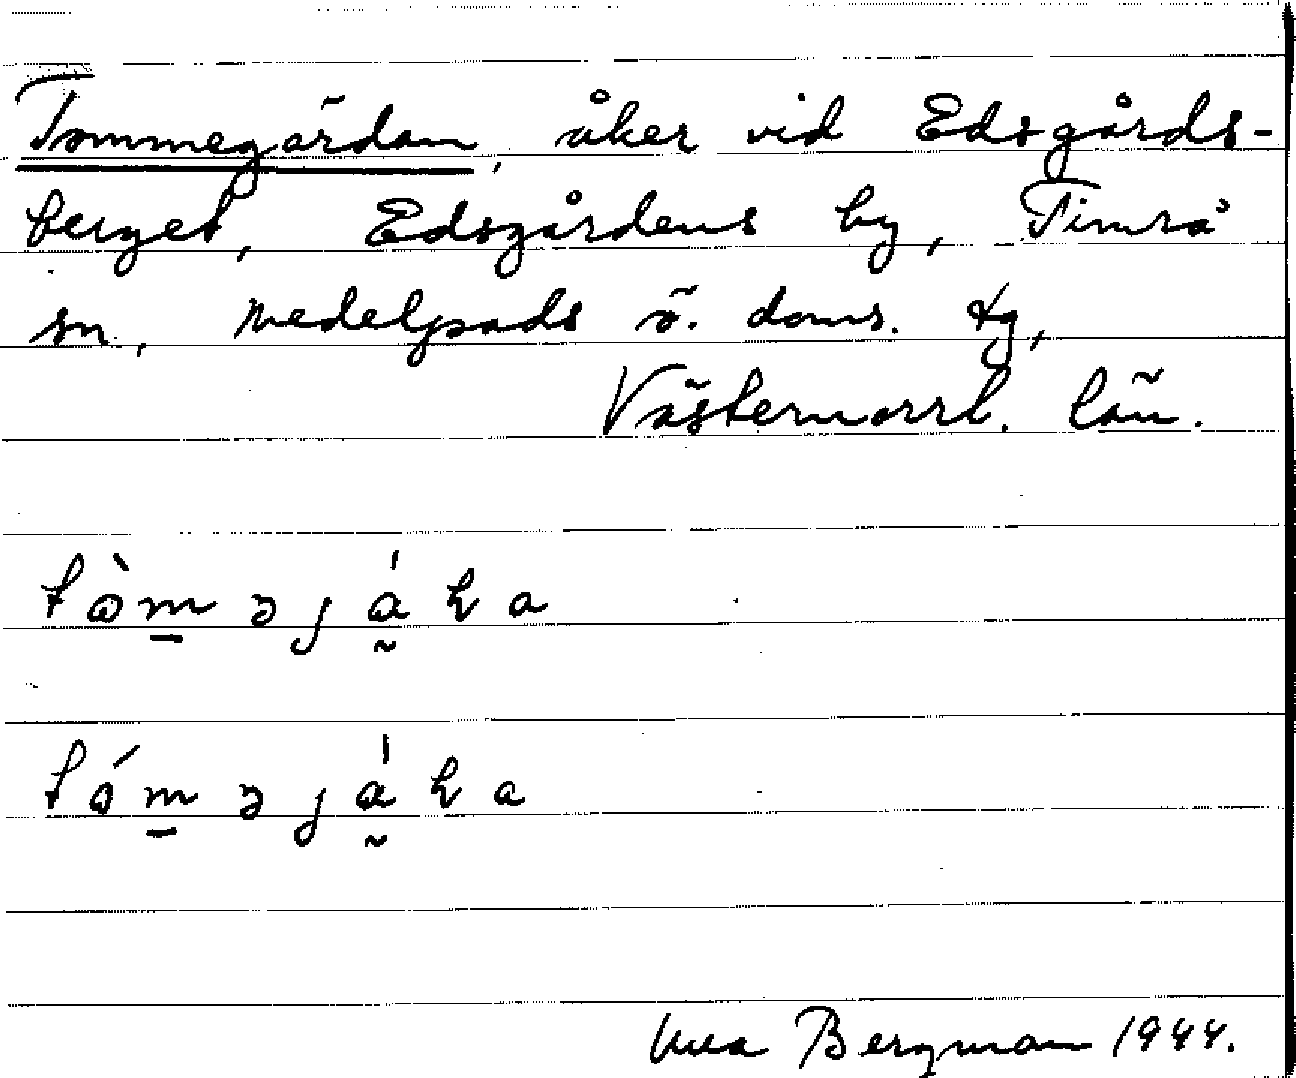 Tommegärdan, åker vid Edsgårds-
berget, Edsgårdens by, Timrå
sn, Medelpads ö. doms. tg,
Västernorrl. län.
Bergman 1944.